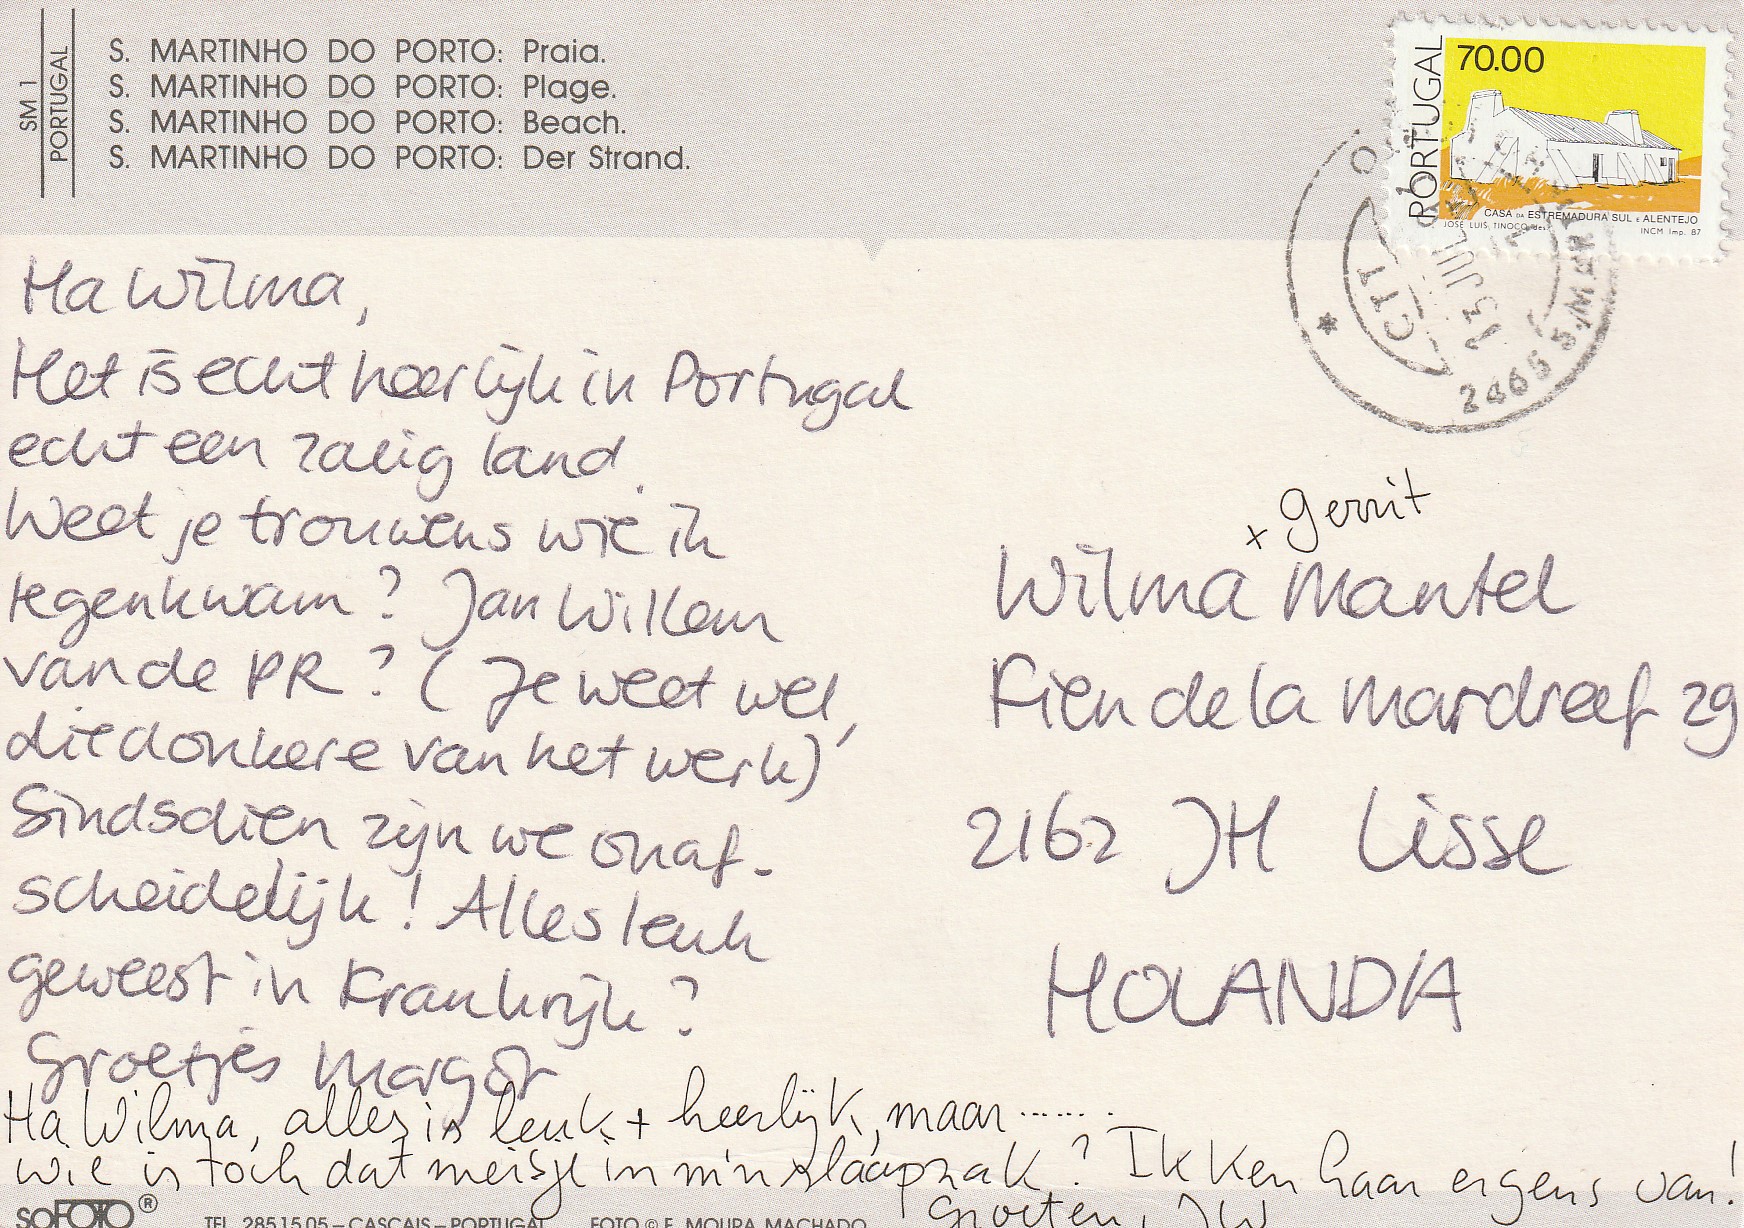 SM 1
PORTUGAL
S. MARTINHO DO PORTO: Praia.
S. MARTINHO DO PORTO: Plage.
S. MARTINHO DO PORTO: Beach.
S. MARTINHO DO PORTO: Der Strand.
PORTUGAL
70.00
CASA DA ESTREMADURA SUL E ALENTEJO
JOSÉ LUIS TINOCO des. INCM Imp. 87
CTT
13 JUL
2465 S. MARTINHO
Ha Wilma,
Het is echt heerlijk in Portugal
echt een zalig land.
Weet je trouwens wie ik
tegenkwam? Jan Willem
van de PR? (Je weet wel,
die donkere van het werk)
Sindsdien zijn we onaf-
scheidelijk! Alles leuk
geweest in Frankrijk?
Groetjes Margot
Ha Wilma, alles is leuk + heerlijk, maar ......
wie is toch dat meisje in m'n slaapzak? Ik ken haar ergens van!
Groeten, JW
+ Gerrit
Wilma Mantel
Fien de la Mardreef 29
2162 JH Lisse
HOLANDA
SOFOTO ®
TEL. 285 15 05 – CASCAIS – PORTUGAL FOTO © F. MOURA MACHADO